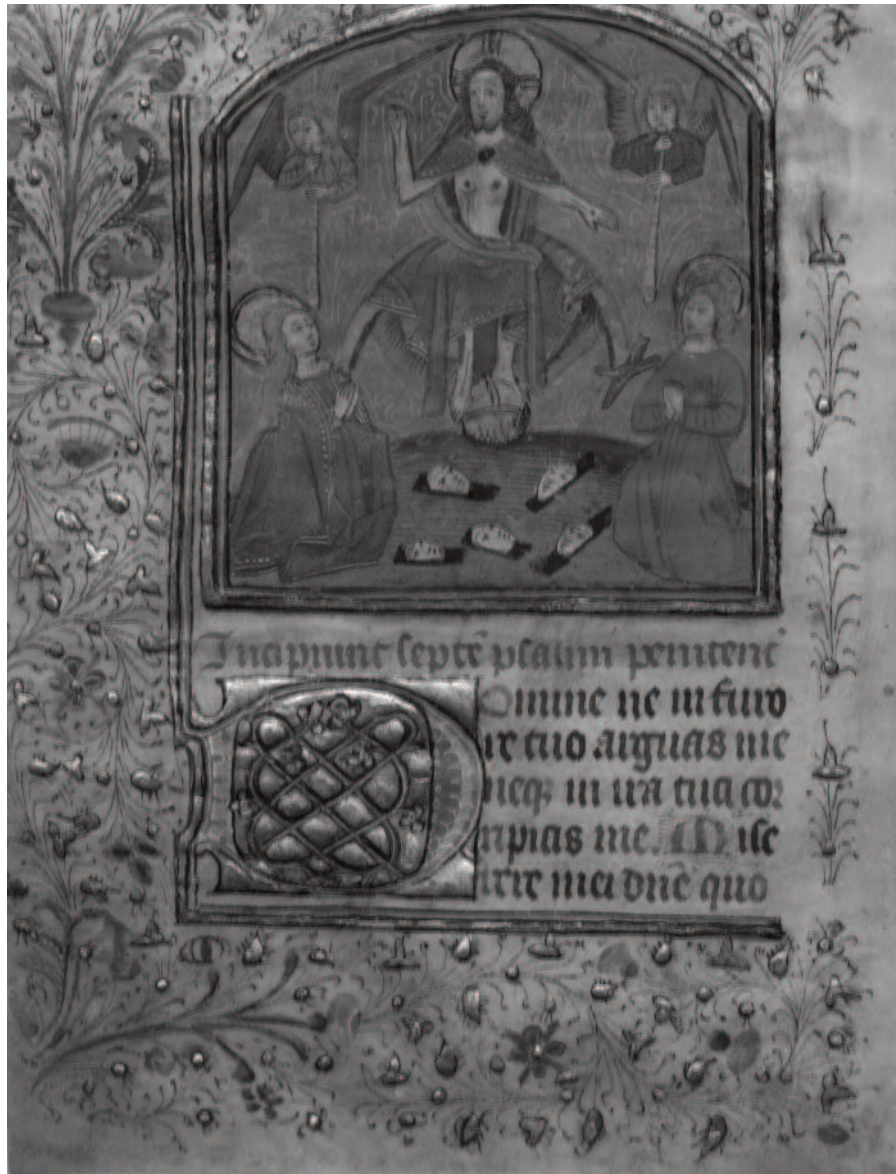 Incipiunt septē psalmi penitenc̄
Domine ne in furo
re tuo arguas me
neqꝫ in ira tua cor
ripias me. Mise
rere mei dn̄e quo